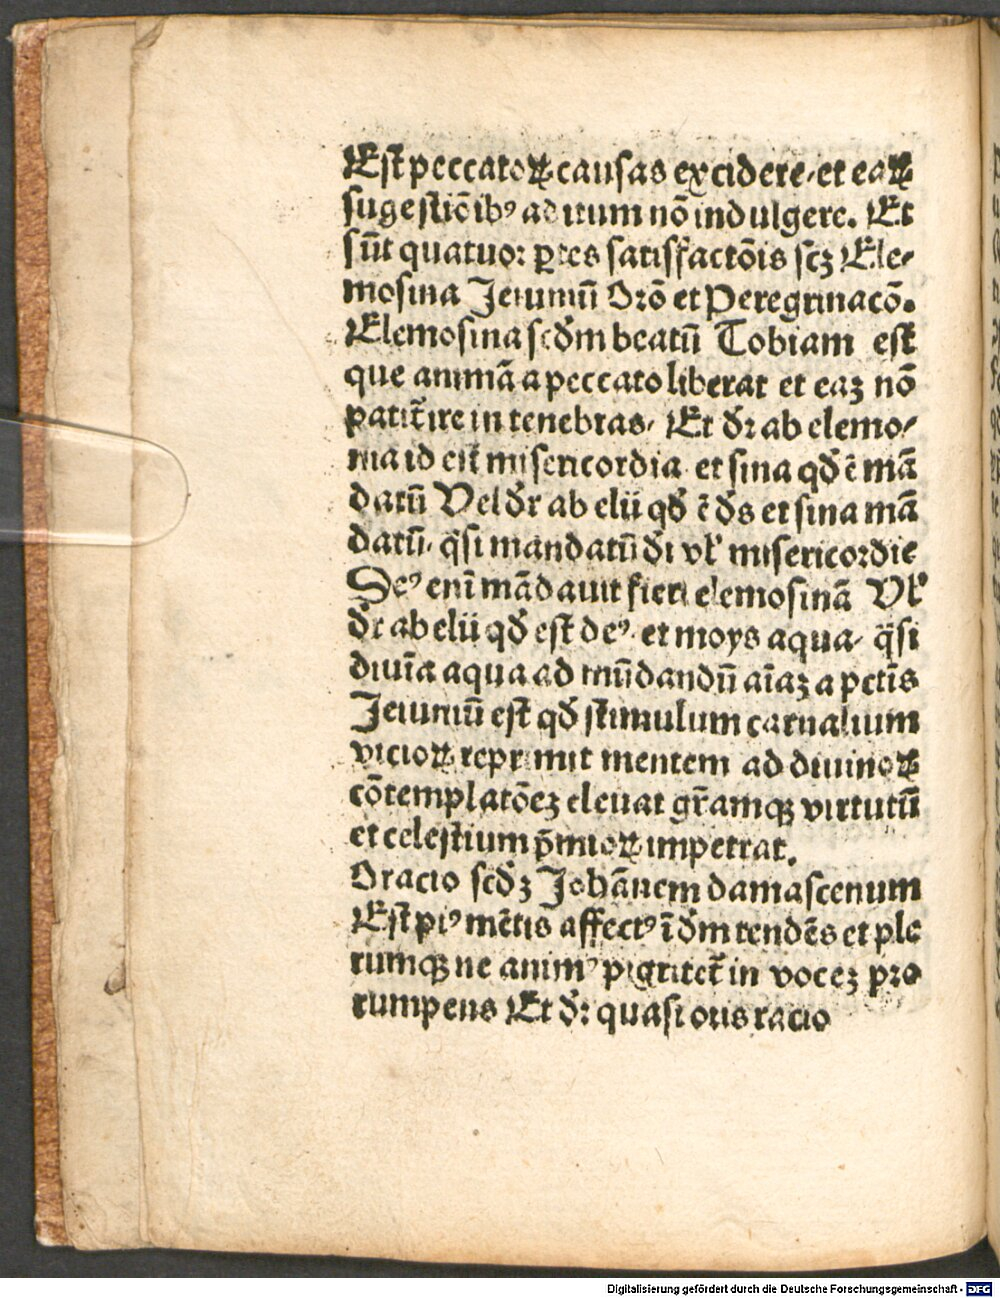 Est peccatoꝝ causas excidere·et eaꝝ
sugestiōibꝰ aditum nō indulgere. Et
sūt quatuor ꝑtes satisfactōis scꝫ Ele-
mosina Jeiuniū Orō et Peregrinacō.
Elemosina scd̄m beatū Tobiam est
que animā a peccato liberat et eaꝫ nō
patit̄ ire in tenebras· Et dr̄ ab elemo-
nia id est misericordia et sina qd̄ ē mā
datū Vel dr̄ ab elii qd̄ ē ds̄ et sina mā
datū· q̄si mandatū di vl̓ misericordie
Deꝰ enī mādauit fieri elemosinā Vl̓
dr̄ ab elii qd̄ est deꝰ· et moys aqua· q̄si
diuīa aqua ad mūdandū aīaꝫ a pctīs
Jeiuniū est qd̄ stimulum carnalium
vicioꝝ reprimit mentem ad diuinoꝝ
cōtemplatōeꝫ eleuat gr̄amqꝫ virtutū
et celestium p̄mioꝝ impetrat.
Oracio scd̄ꝫ Johānem damascenum
Est piꝰ mētis affectꝰ ī dm̄ tendēs et ple
rumqꝫ ne animꝰ pigritet̄ in voceꝫ pro
rumpens Et dr̄: quasi oris racio
Digitalisierung gefördert durch die Deutsche Forschungsgemeinschaft - DFG